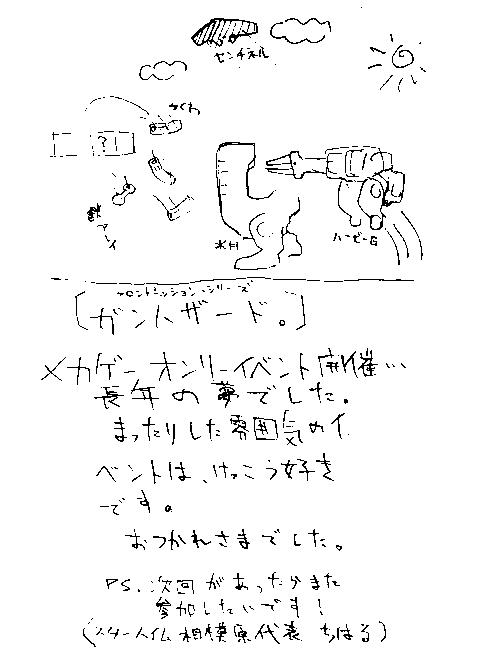 センチネル
ちくわ
?!
鉄アレイ
水月
ハービーG
フロントミッション・シリーズ
[ガントザード。]
メカゲーオンリーイベント開催…
長年の夢でした。
まったりした雰囲気のイ
ベントは、けっこう好き
です。
おつかれさまでした。
PS.次回があったらまた
参加したいです!
(スタースイム相模原代表 ちはる)